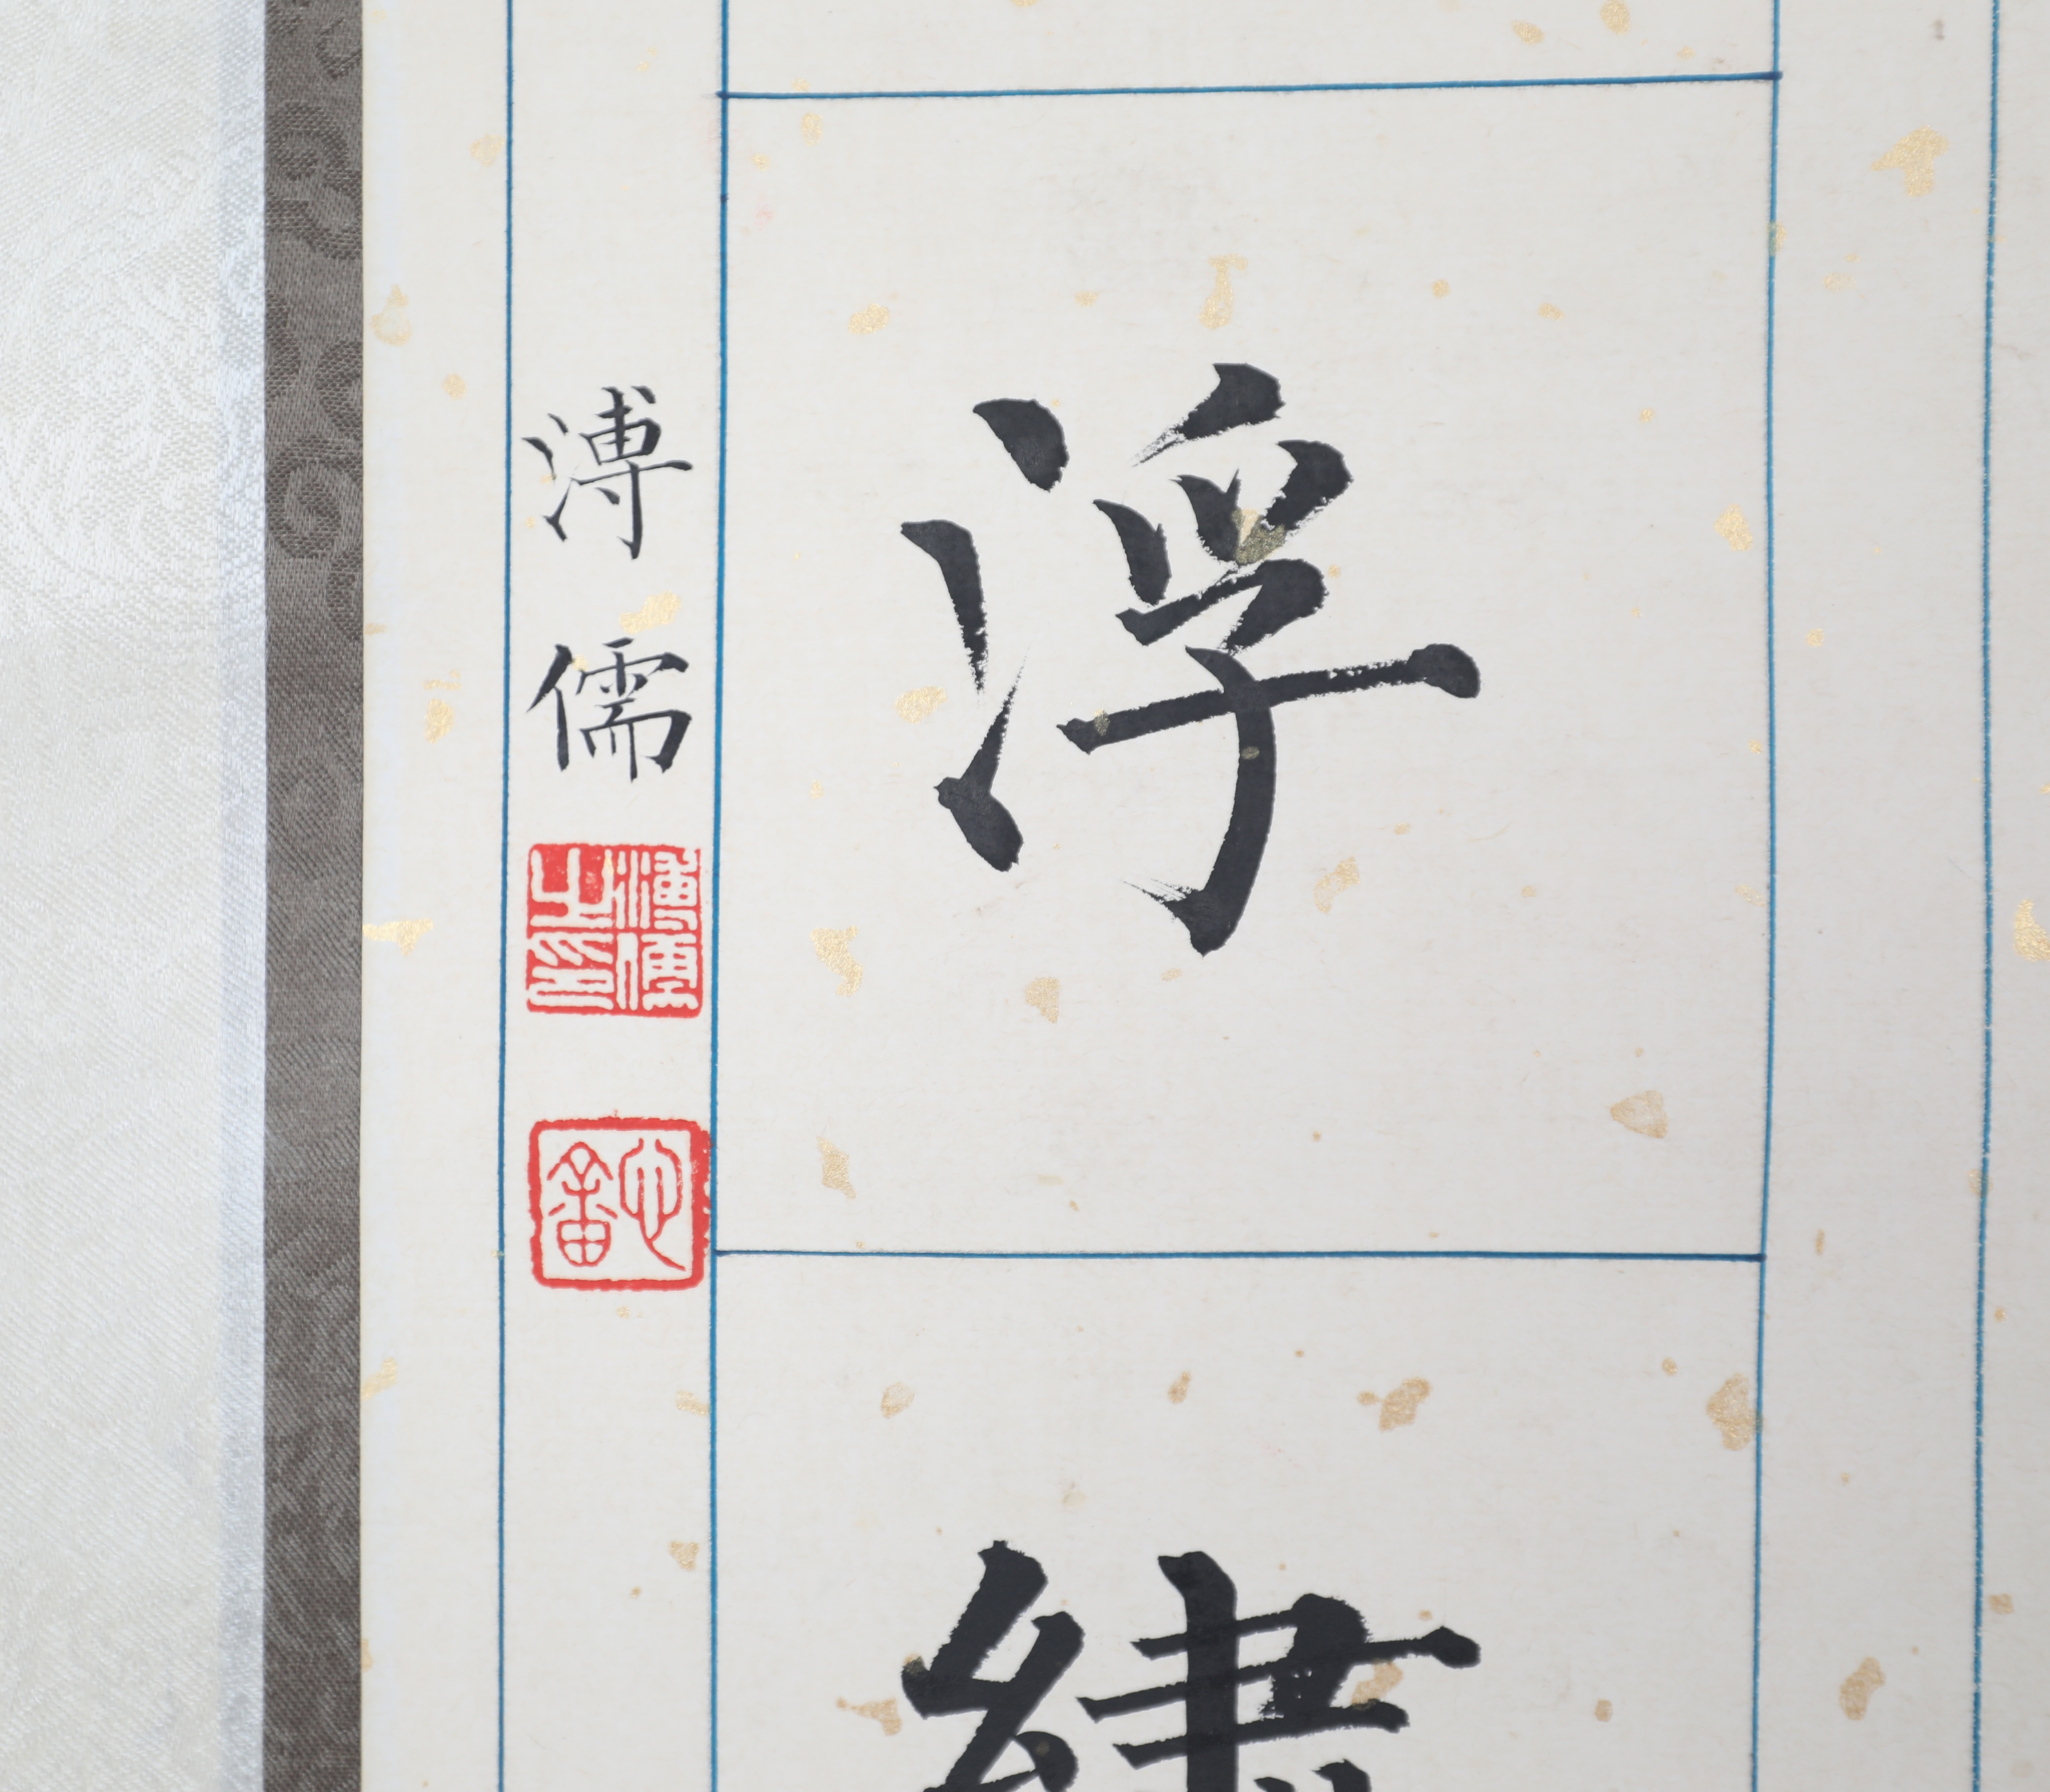 浮繡
溥儒
溥儒之印
心畬